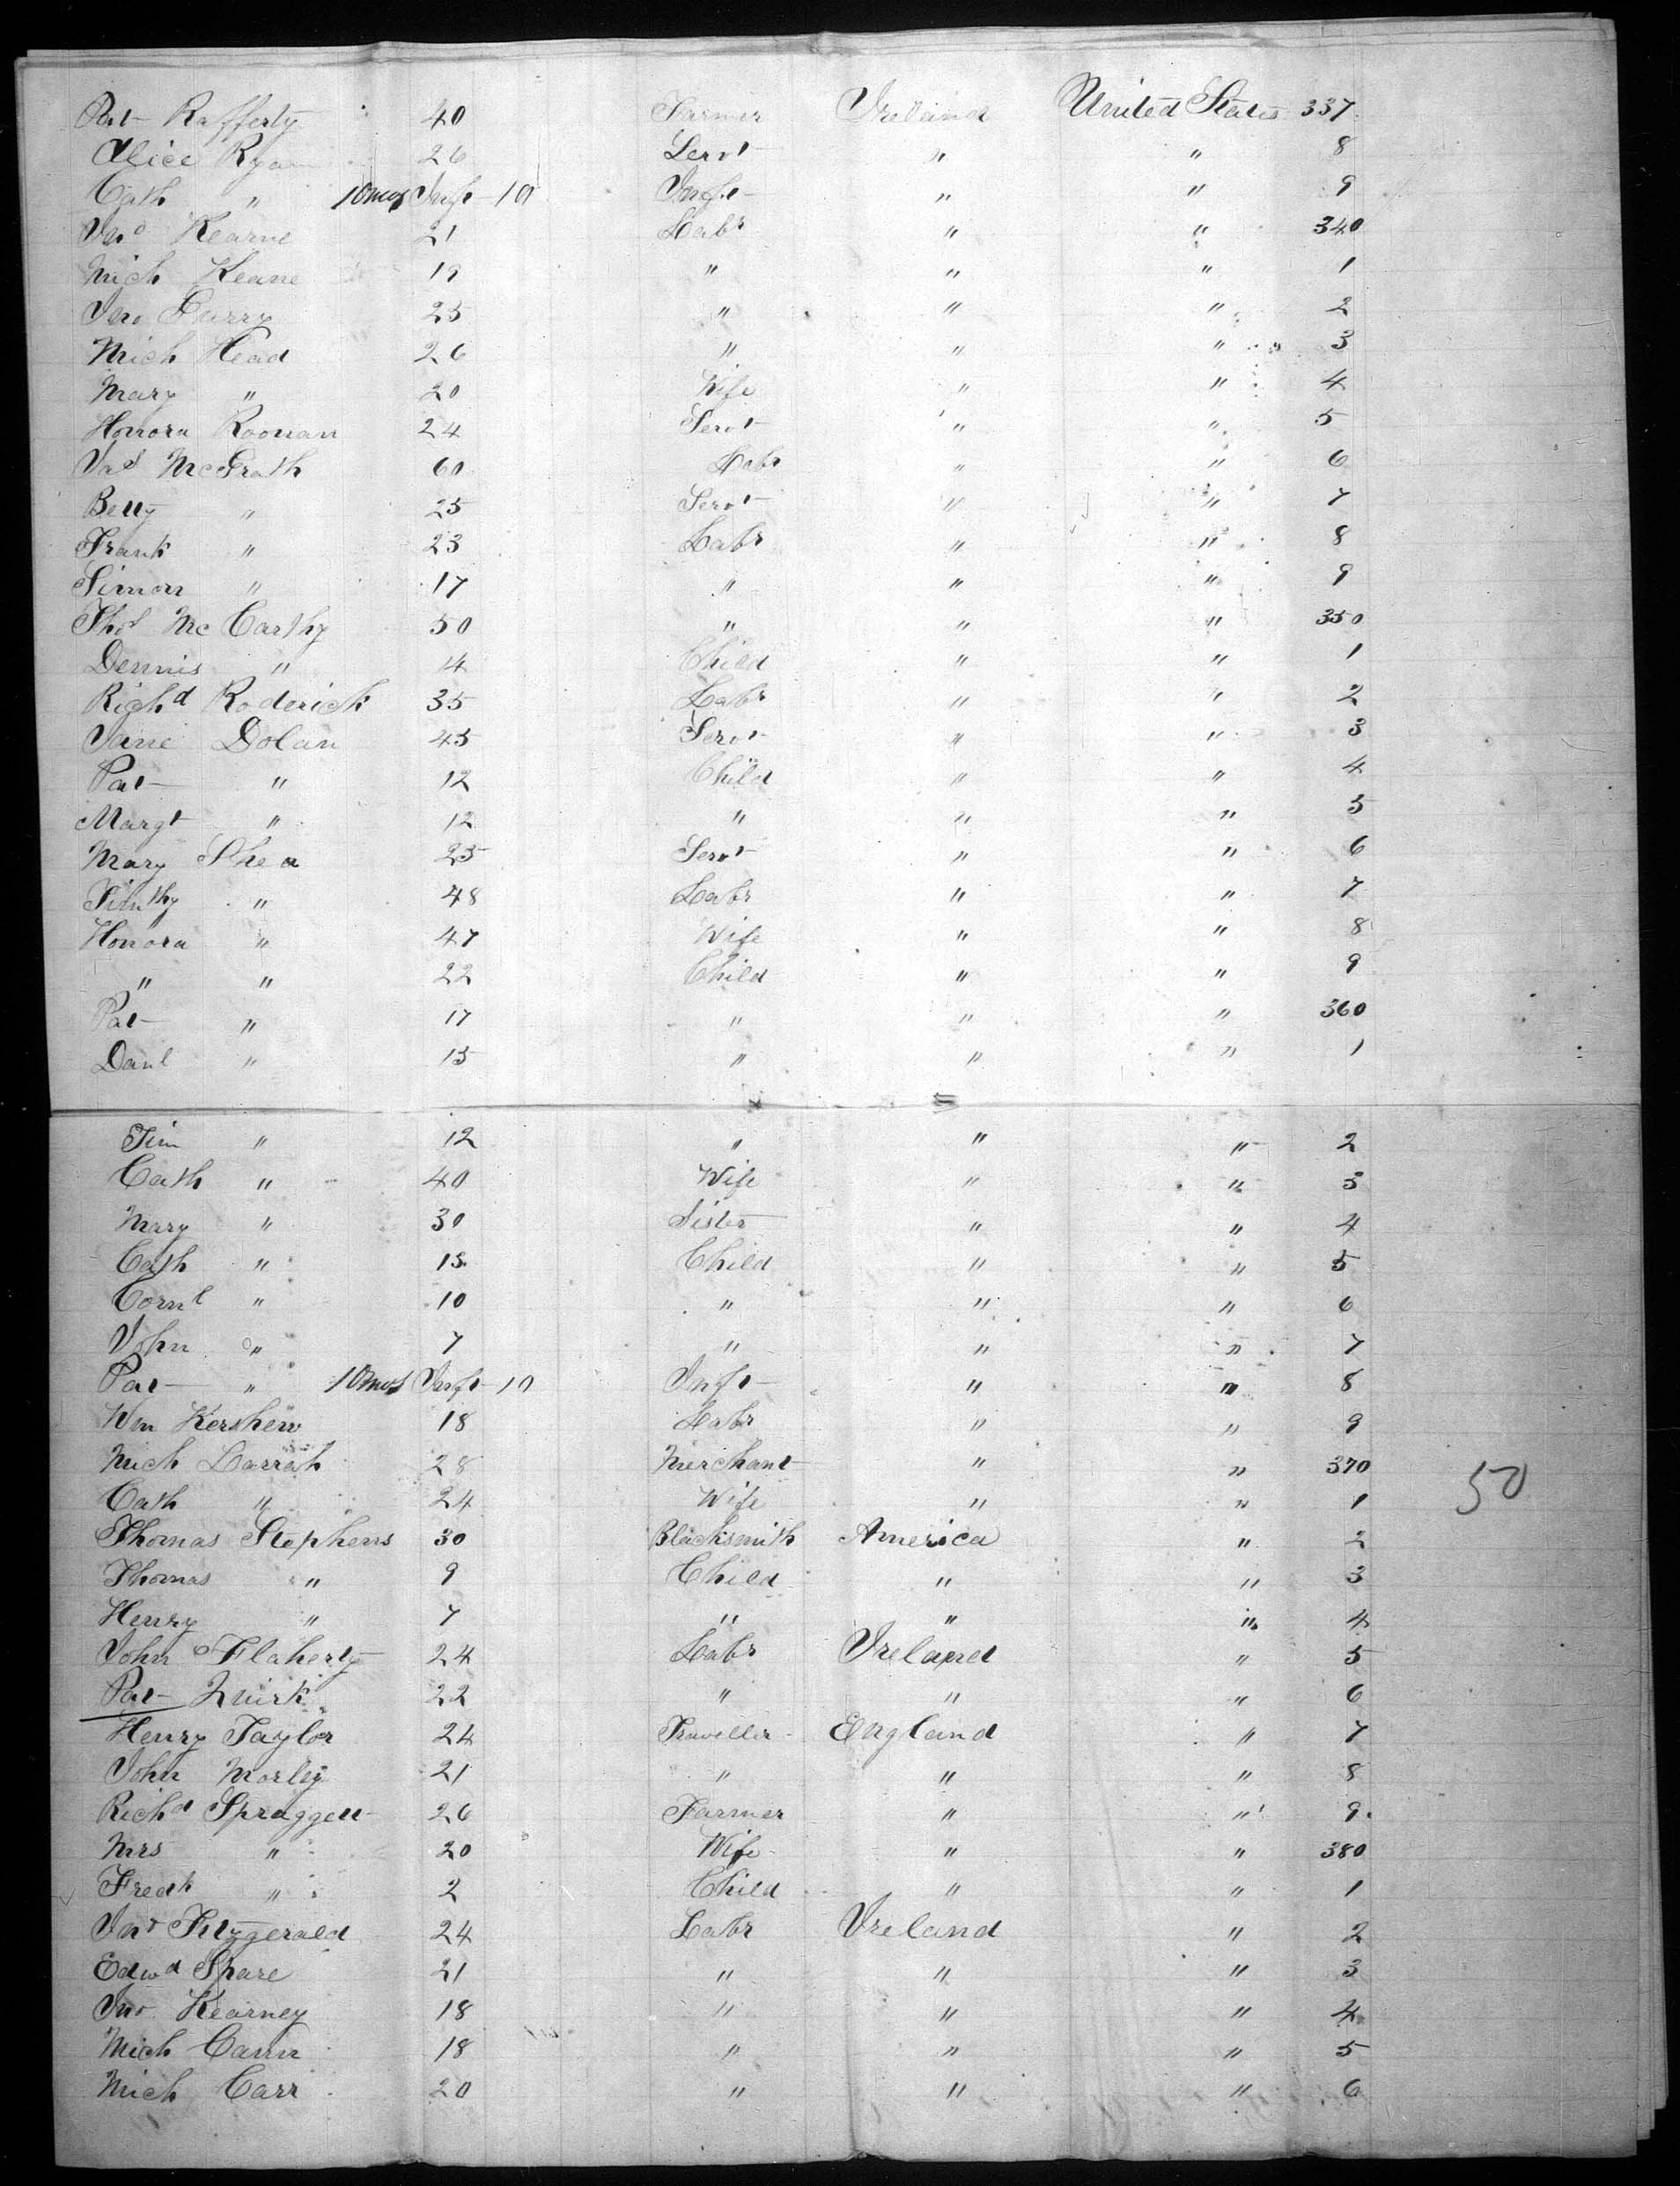 Pat Rafferty 40 Farmer Ireland United States 337
Alice Ryan 26 Servt " " 8
Cath " 10mos Inft 10 Inft " " 9
Jno Kearne 21 Labr " " 340
Mich Keane 19 " " " 1
Jno Curry 25 " " " 2
Mich Head 26 " " " 3
Mary " 20 Wife " " 4
Honora Roonan 24 Servt " " 5
Jas McGrath 60 Labr " " 6
Betty " 25 Servt " " 7
Frank " 23 Labr " " 8
Simon " 17 " " " 9
Thos McCarthy 50 " " " 350
Dennis " 4 Child " " 1
Richd Roderick 35 Labr " " 2
Jane Dolan 45 Servt " " 3
Pat " 12 Child " " 4
Margt " 12 " " " 5
Mary Shea 25 Servt " " 6
Timthy " 48 Labr " " 7
Honora " 47 Wife " " 8
" " 22 Child " " 9
Pat " 17 " " " 360
Danl " 15 " " " 1
Jim " 12 " " " 2
Cath " 40 Wife " " 3
Mary " 30 Sister " " 4
Cath " 13 Child " " 5
Cornl " 10 " " " 6
John " 7 " " " 7
Pat " 10mos Inft 10 Inft " " 8
Wm Kershew 18 Labr " " 9
Mich Darrah 28 Merchant " " 370
50
Cath " 24 Wife " " 1
Thomas Stephens 30 Blacksmith America " 2
Thomas " 9 Child " " 3
Henry " 7 " " " 4
John Flaherty 24 Labr Ireland " 5
Pat Quirk 22 " " " 6
Henry Taylor 24 Traveller England " 7
John Morley 21 " " " 8
Richd Spraggett 26 Farmer " " 9
Mrs " 20 Wife " " 380
Fredk " 2 Child " " 1
Jno Fitzgerald 24 Labr Ireland " 2
Edwd Share 21 " " " 3
Jno Kearney 18 " " " 4
Mich Cann 18 " " " 5
Mich Carr 20 " " " 6